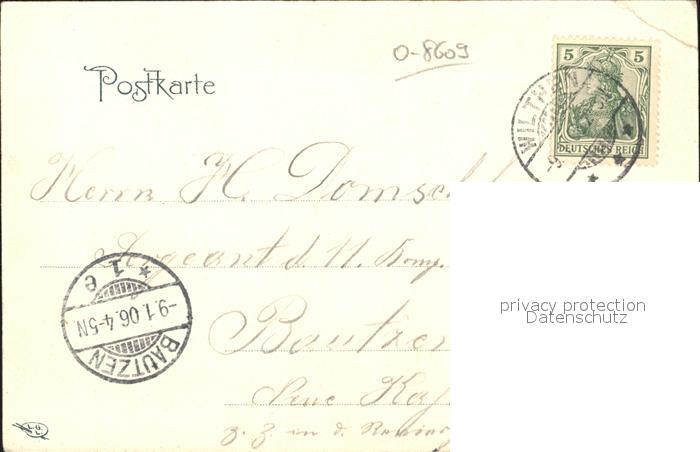 O-8609
Postkarte
5 5
DEUTSCHES REICH
WILTHEN
Herrn H. Domsc
Sergeant d. 11. Komp.
* 1 e
-9.1.06.4-5N
BAUTZEN
Bautzen
Neue Kas
z. Z. in d. Revier
privacy protection
Datenschutz